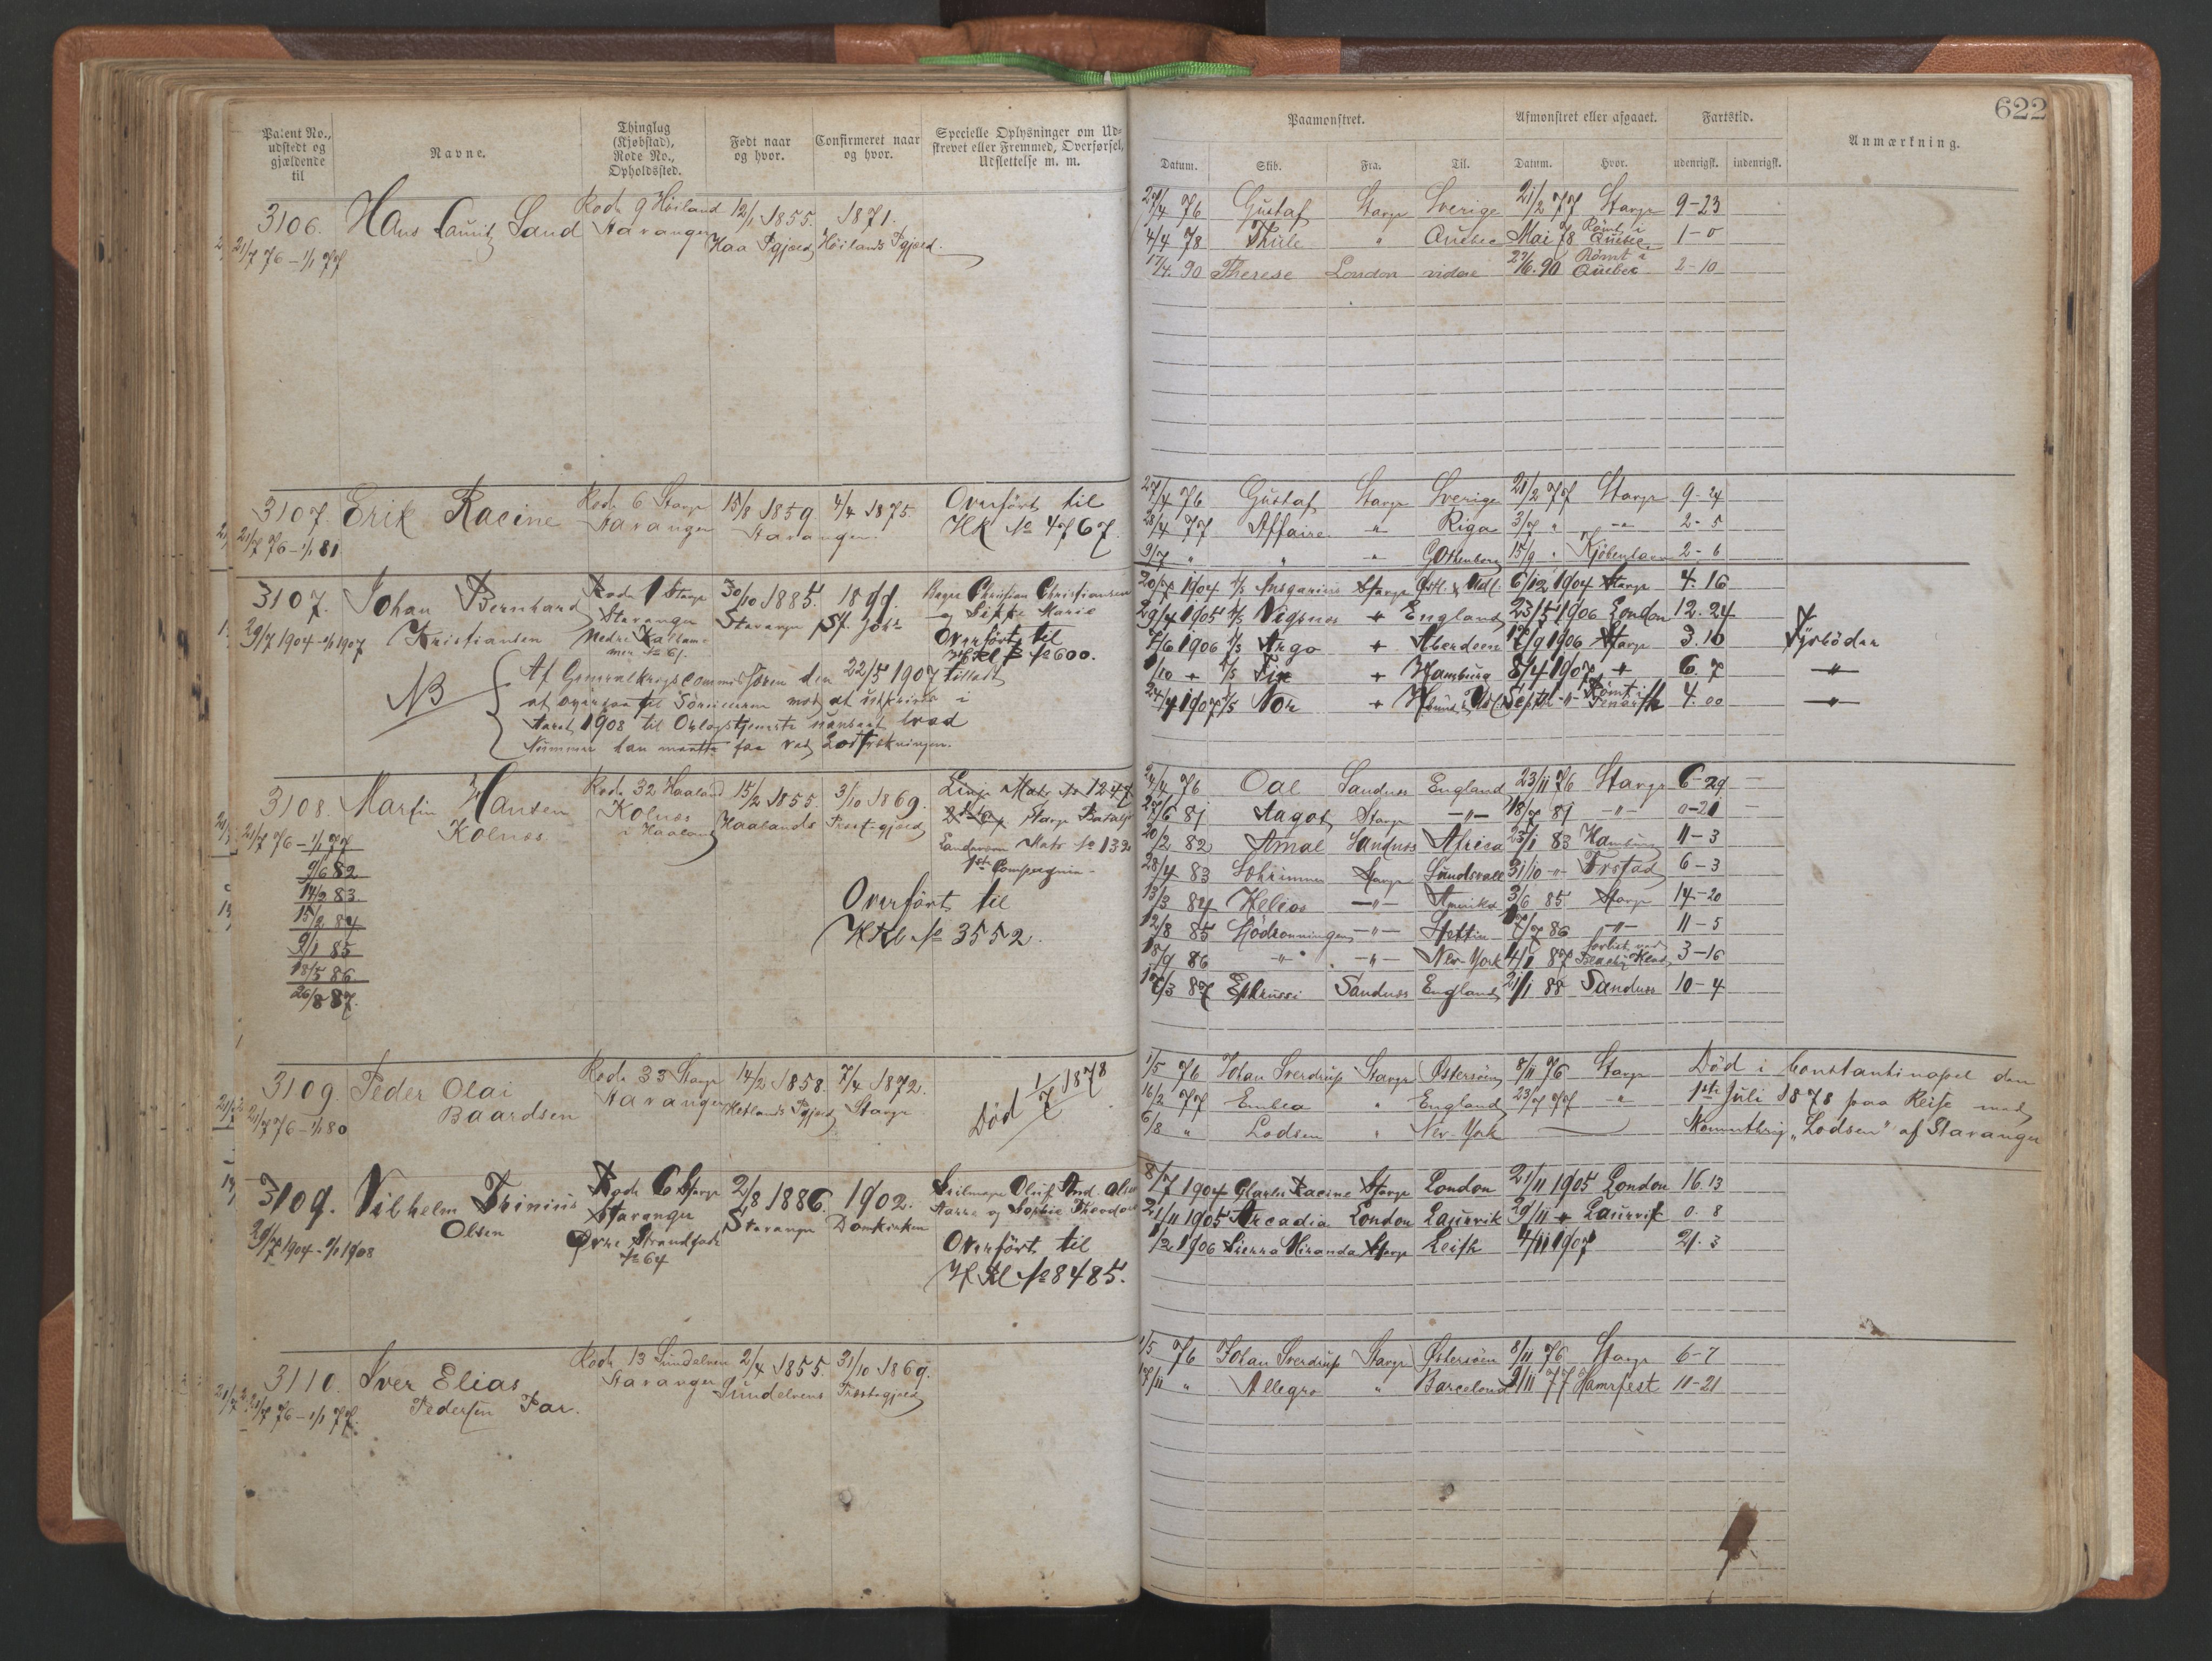 622
Patent No., udstedt og gjældende til
Navne.
Thinglag (Kjøbstad), Rode No., Opholdssted.
Født naar og hvor.
Confirmeret naar og hvor.
Specielle Oplysninger om Udskrevet eller Fremmed, Overførsel, Udslettelse m. m.
Paamønstret.
Afmønstret eller afgaaet.
Fartstid.
Anmærkning.
Datum. Skib. Fra. Til. Datum. Hvor. udenrigsk. indenrigsk.
3106. Hans Lauritz Sand Rode 9 Höiland 12/1 1855. 1871.
Stavanger Haa Pgjæld Höilands Pgjæld.
21/7 76 – 1/1 77
27/4 76 Gustaf Stavgr Sverige 21/2 77 Stavgr 9-23
4/4 78 Thule " Quebec Mai 78 Römt i Quebec 1-0
17/4. 90 Therese London videre 27/6. 90 Römt i Quebec 2-10
3107. Erik Racine Rode 6 Stavgr 15/8 1859 4/4 1875. Overført til
21/7 76 – 1/1 81 Stavanger Stavanger. HK No 4767.
27/4 76 Gustaf Stavgr Sverige 21/2 77 Stavgr 9-24
28/4 77 Affaire " Riga 3/7 " -"- 2-5
9/7 " " " Gothenborg 15/9 " Kjöbenhavn 2-6
3107. Johan Bernhard Rode 1 Stavgr 30/10 1885. 1899. Christian Christiansen
Kristiansen Stavanger Stavanger St. Joh. og Marie
29/7 1904 – 1/1 1907 Nedre No 61. Overført til
No 600.
NB Af Generalkrigscommissæren den 22/5 1907 tilladt
at overgaa til Sörullerne mod at udskrives i
Aaret 1908 til Orlogstjeneste uanseet hvad
Nummer han maatte faa ved Lodtrækningen.
20/7 1904 D/S Ansgarius Stavgr 6/12 1904 Stavgr 4. 16
29/4 1905 D/S Vigsnes + England 23/5 1906 London 12. 24
7/6 1906 D/S Argo + Aberdeen 17/9 1906 Stavgr 3. 10 Fyrböder
1/10 + D/S + Hamburg 8/4 1907 + 6. 7 -"-
24/4 1907 D/S Nor + Septbr -"- Römt i 4. 00 -"-
3108. Martin Hansen Rode 32 Haaland 15/2 1855. 3/10 1869. Linje Matr No 1247
Kolnes. Kolnes Haalands Præstegjæld Stavgr Bataljon
21/7 76 – 1/1 77 i Haaland Landværn Matr No 132
9/6 82 1ste Compagnie –
14/3 83 Overført til
15/2 84 HKl No 3552.
9/1 85
18/5 86.
26/8 87.
24/4 76 Oal Sandnes England 23/11 76 Stavgr 6-29
27/6 81 Aagot Stavgr -"- 18/7 81 -"- 0-21
20/2 82 Amal Sandnes Africa 23/1 83 Hamburg 11-3
28/4 83 Stavgr Sundsvall 31/10 -"- 6-3
13/3 84 Helios -"- Amerika 3/6 85. Stavgr 14-20
12/8 85 -"- Stettin 17/7 86 -"- 11-5
18/9 86 -"- -"- New-York 4/1 87 forlist ved Beachy Head 3-16
17/3 87 Ephrussi Sandnes England 21/1 88 Sandnes 10-4
3109. Peder Olai Rode 33 Stavgr 14/2 1858. 7/4 1872.
Baardsen Stavanger Hetlands Pgjæld Stavgr Död 1/7 1878
21/7 76 – 1/1 80
1/5 76 Johan Sverdrup Stavgr Östersöen 8/11 76 Stavgr Död i Constantinopel den
16/2 77 Embla " England 23/7 77 " 1ste Juli 1878 paa Reise med
6/8 " Lodsen " New-York "Lodsen" af Stavanger
3109. Vilhelm Trinius Rode 6 Stavgr 2/8 1886. 1902. Oluf And. Olsen
Olsen Stavanger Stavanger Domkirken og Sophie Theodora
29/7 1904 – 1/1 1908 Øvre Strandgade No 64 Overført til
HKl No 8485.
8/7 1904 Charles Racine Stavgr London 21/11 1905 London 16. 13
21/11 1905 Arcadia London Laurvik 29/11 + Laurvik 0. 8
1/2 1906 Sierra Miranda Stavgr Leith 4/11 1907 21. 3
3110. Iver Elias Rode 13 Sundelven 2/4 1855. 31/10 1869.
Pedersen Far. Stavanger Sundelvens Præstegjæld
21/7 76 – 1/1 77.
1/5 76 Johan Sverdrup Stavgr Östersöen 8/11 76 Stavgr 6-7
17/11 " Allegro " Barcelona 9/11 77 Hamrfest 11-21